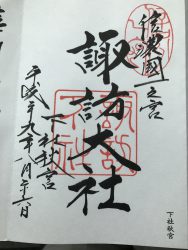 信濃國一之宮
諏訪大社
下社秋宮
平成二十九年八月十六日
下社秋宮